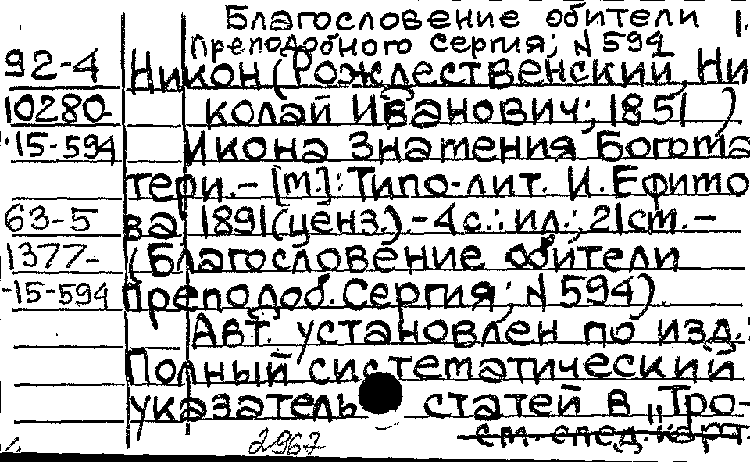 Благословение обители
Преподобного Сергия; N 594
92-4 Никон (Рождественский, Ни
10280- колай Иванович; 1851 )
15-594 Икона Знамения Богома
тери. - [М.]: Типо-лит. И. Ефимо
63-5 ва 1891 (ценз.). - 4 с.: ил.; 21 см. -
1377- (Благословение обители
-15-594 преподоб. Сергия; N 594).
Авт. установлен по изд.:
Полный систематический
указатель статей в "Тро-
см. след. карт.
2967